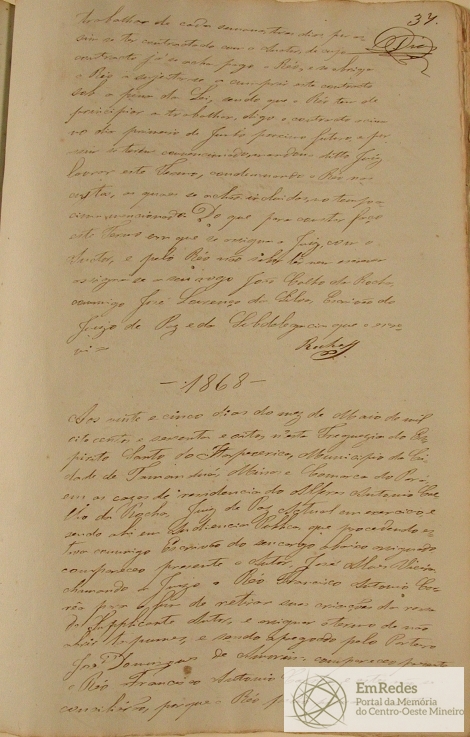 37.
trabalhar de cada semana tres dias por as-
sim se ter contractado com o Autor, de cujo
contracto já se acha pago o Réo, e se obriga
o Réo a sujeitar-se a cumprir este contracto
sob a pena da Lei, sendo que o Réo tem de
principiar a trabalhar, digo o contracto
no dia primeiro de Junho proximo futuro, e por
assim se terem mandou ditto Juiz
lavrar este Termo, condemnando o Réo nas
custas, as quaes se incluidas no tempo
mencionado. Do que para constar faço
este Termo em que se assigna o Juiz, com o
Autor, e pelo Réo não saber ler nem escrever
assigna-se a seu rogo José da Rocha,
commigo José Lourenço da Silva, Escrivão do
Juizo de Paz e da Subdelegacia que o escre-
vi
Rocha
-1868-
Aos vinte e cinco dias do mez de Maio de mil
oito centos e sessenta e oito, n'esta Freguezia do Es-
pirito Santo do Itapecerica, Municipio da Ci-
dade de Tamanduá, Minas e Comarca do
em as cazas de residencia do Alferes Antonio Coe-
lho da Rocha, Juiz de Paz Actual em exercicio e
sendo ahi em Audiencia Publica, que procedendo es-
tava commigo Escrivão do seu cargo abaixo assignado
compareceo presente o Autor, José Alves Vieira
chamando a Juizo o Réo Francisco Antonio Cor-
rêa para o fim de retirar suas criações da
do Supplicante Autor, e assignar termo de
tapumes, e sendo apregoado pelo Porteiro
José Domingues de compareceo presente
o Réo Francisco Antonio
conciliárão, porque o Réo
EmRedes
Portal da Memória
do Centro-Oeste Mineiro